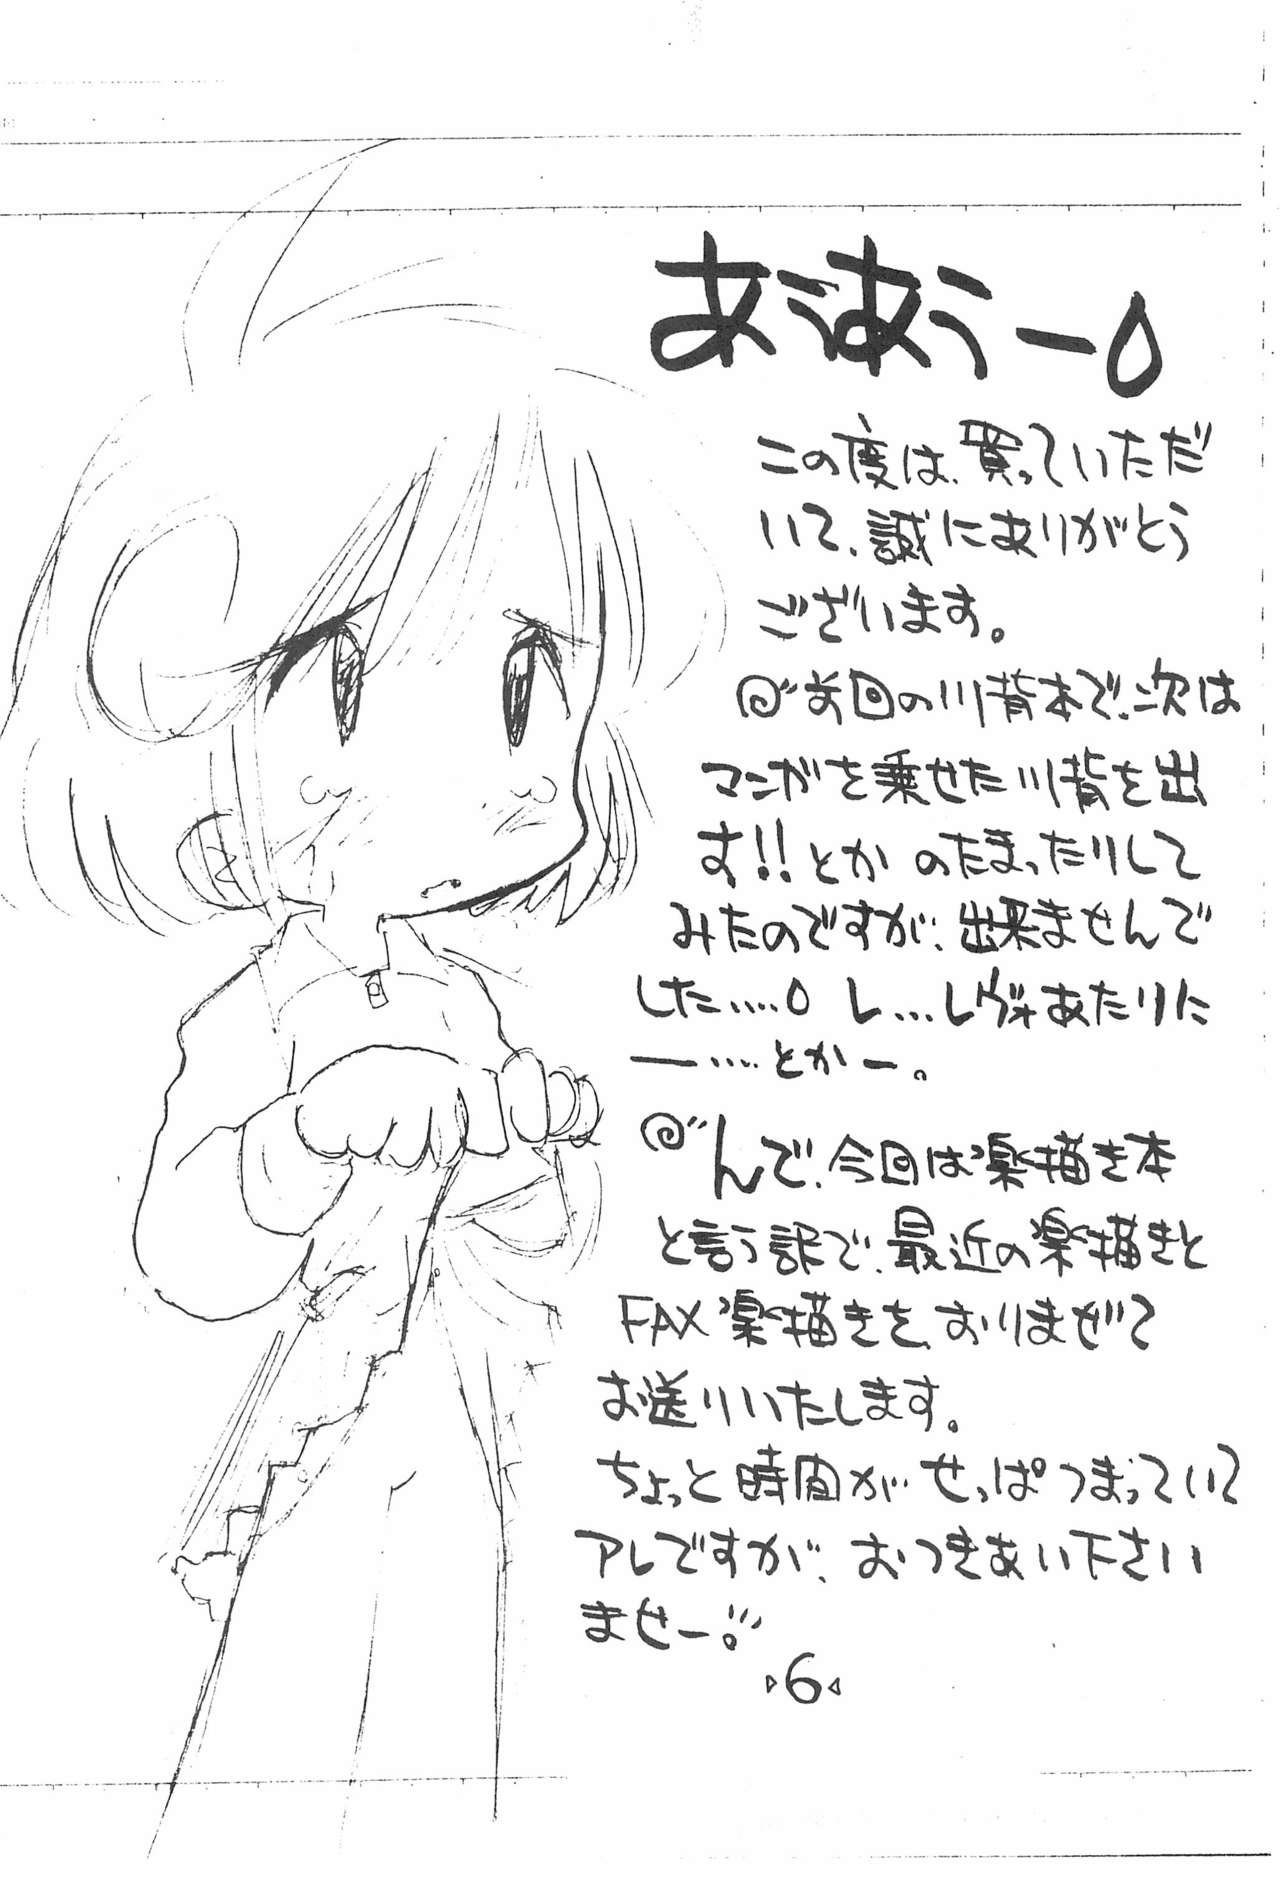 あうあうー
この度は、買っていただ
いて、誠にありがとう
ございます。
前回の川背本で、次は
マンガを乗せた川背を出
す!!とか のたまったりして
みたのですが、出来ませんで
した…. レ…レヴォあたりに
ー….とかー。
んで、今回は楽描き本
と言う訳で、最近の楽描きと
FAX楽描きを、おりまぜて
お送りいたします。
ちょっと時間がせっぱつまっていて
アレですが、おつきあい下さい
ませー。
▷6◁